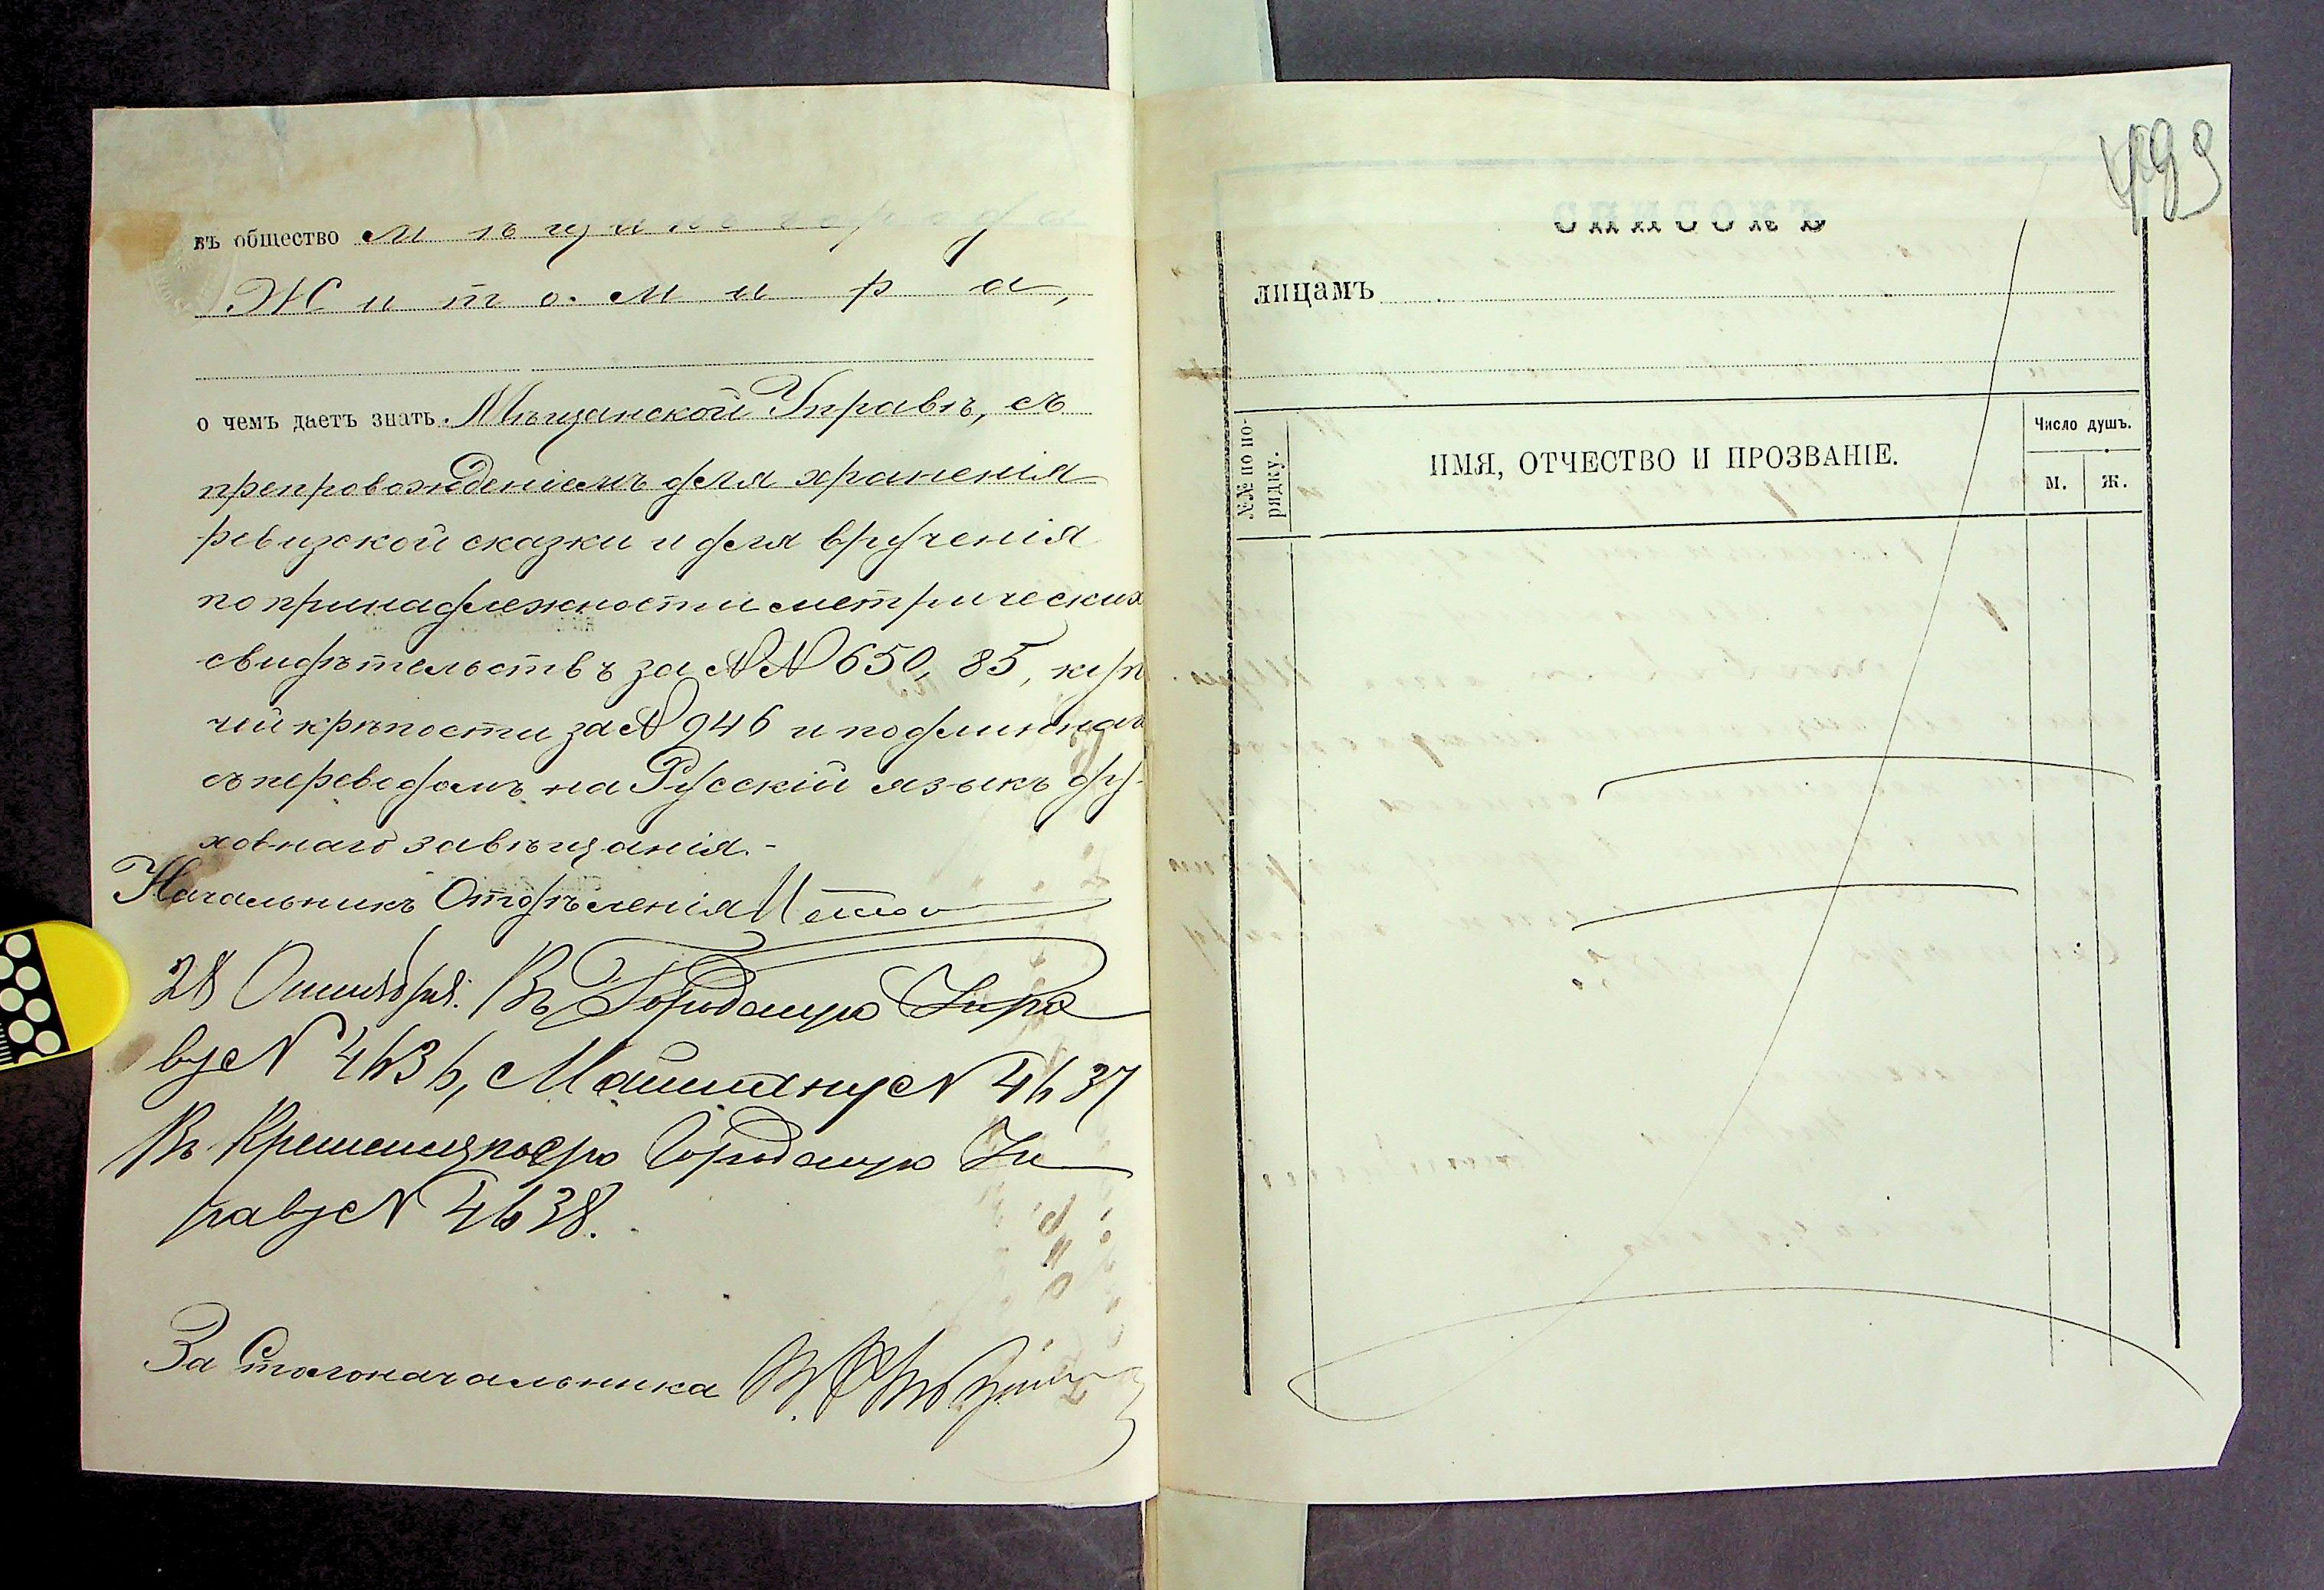 въ общество мѣщанъ города
Житомира,
о чемъ даетъ знать Мѣщанской Управѣ, съ
препровожденіемъ для храненія
ревизской сказки и для врученія
по принадлежности метрическихъ
свидѣтельствъ за №№ 650, 85, куп
чей крѣпости за № 946 и подлиннаго
съ переводомъ на Русскій языкъ ду-
ховнаго завѣщанія.-
Начальникъ Отдѣленія
28 Октября. Въ Городскую Упра
ву № 4636, Мѣщанину № 4637
Въ Кременецкую Городскую Уп
раву № 4638.
За Столоначальника
499
СПИСОКЪ
лицамъ
№№ по по-
рядку.
ИМЯ, ОТЧЕСТВО И ПРОЗВАНІЕ.
Число душъ.
м. ж.